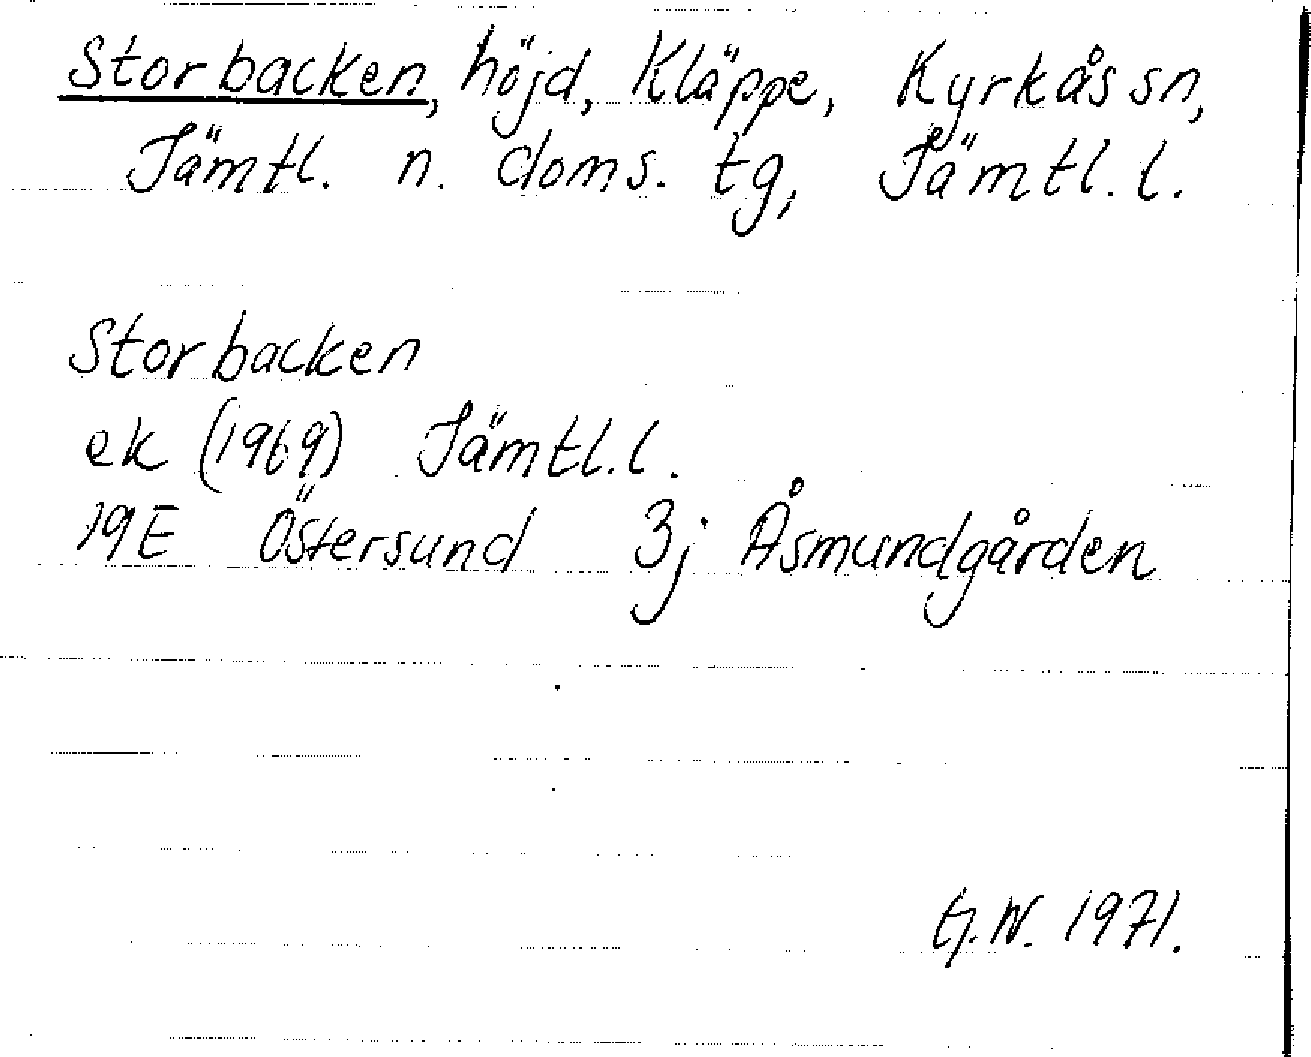 Storbacken, höjd, Kläppe, Kyrkås sn,
Jämtl. n. doms. tg, Jämtl. l.
Storbacken
ek (1969) Jämtl. l.
19E Östersund 3j Åsmundgården
1971.